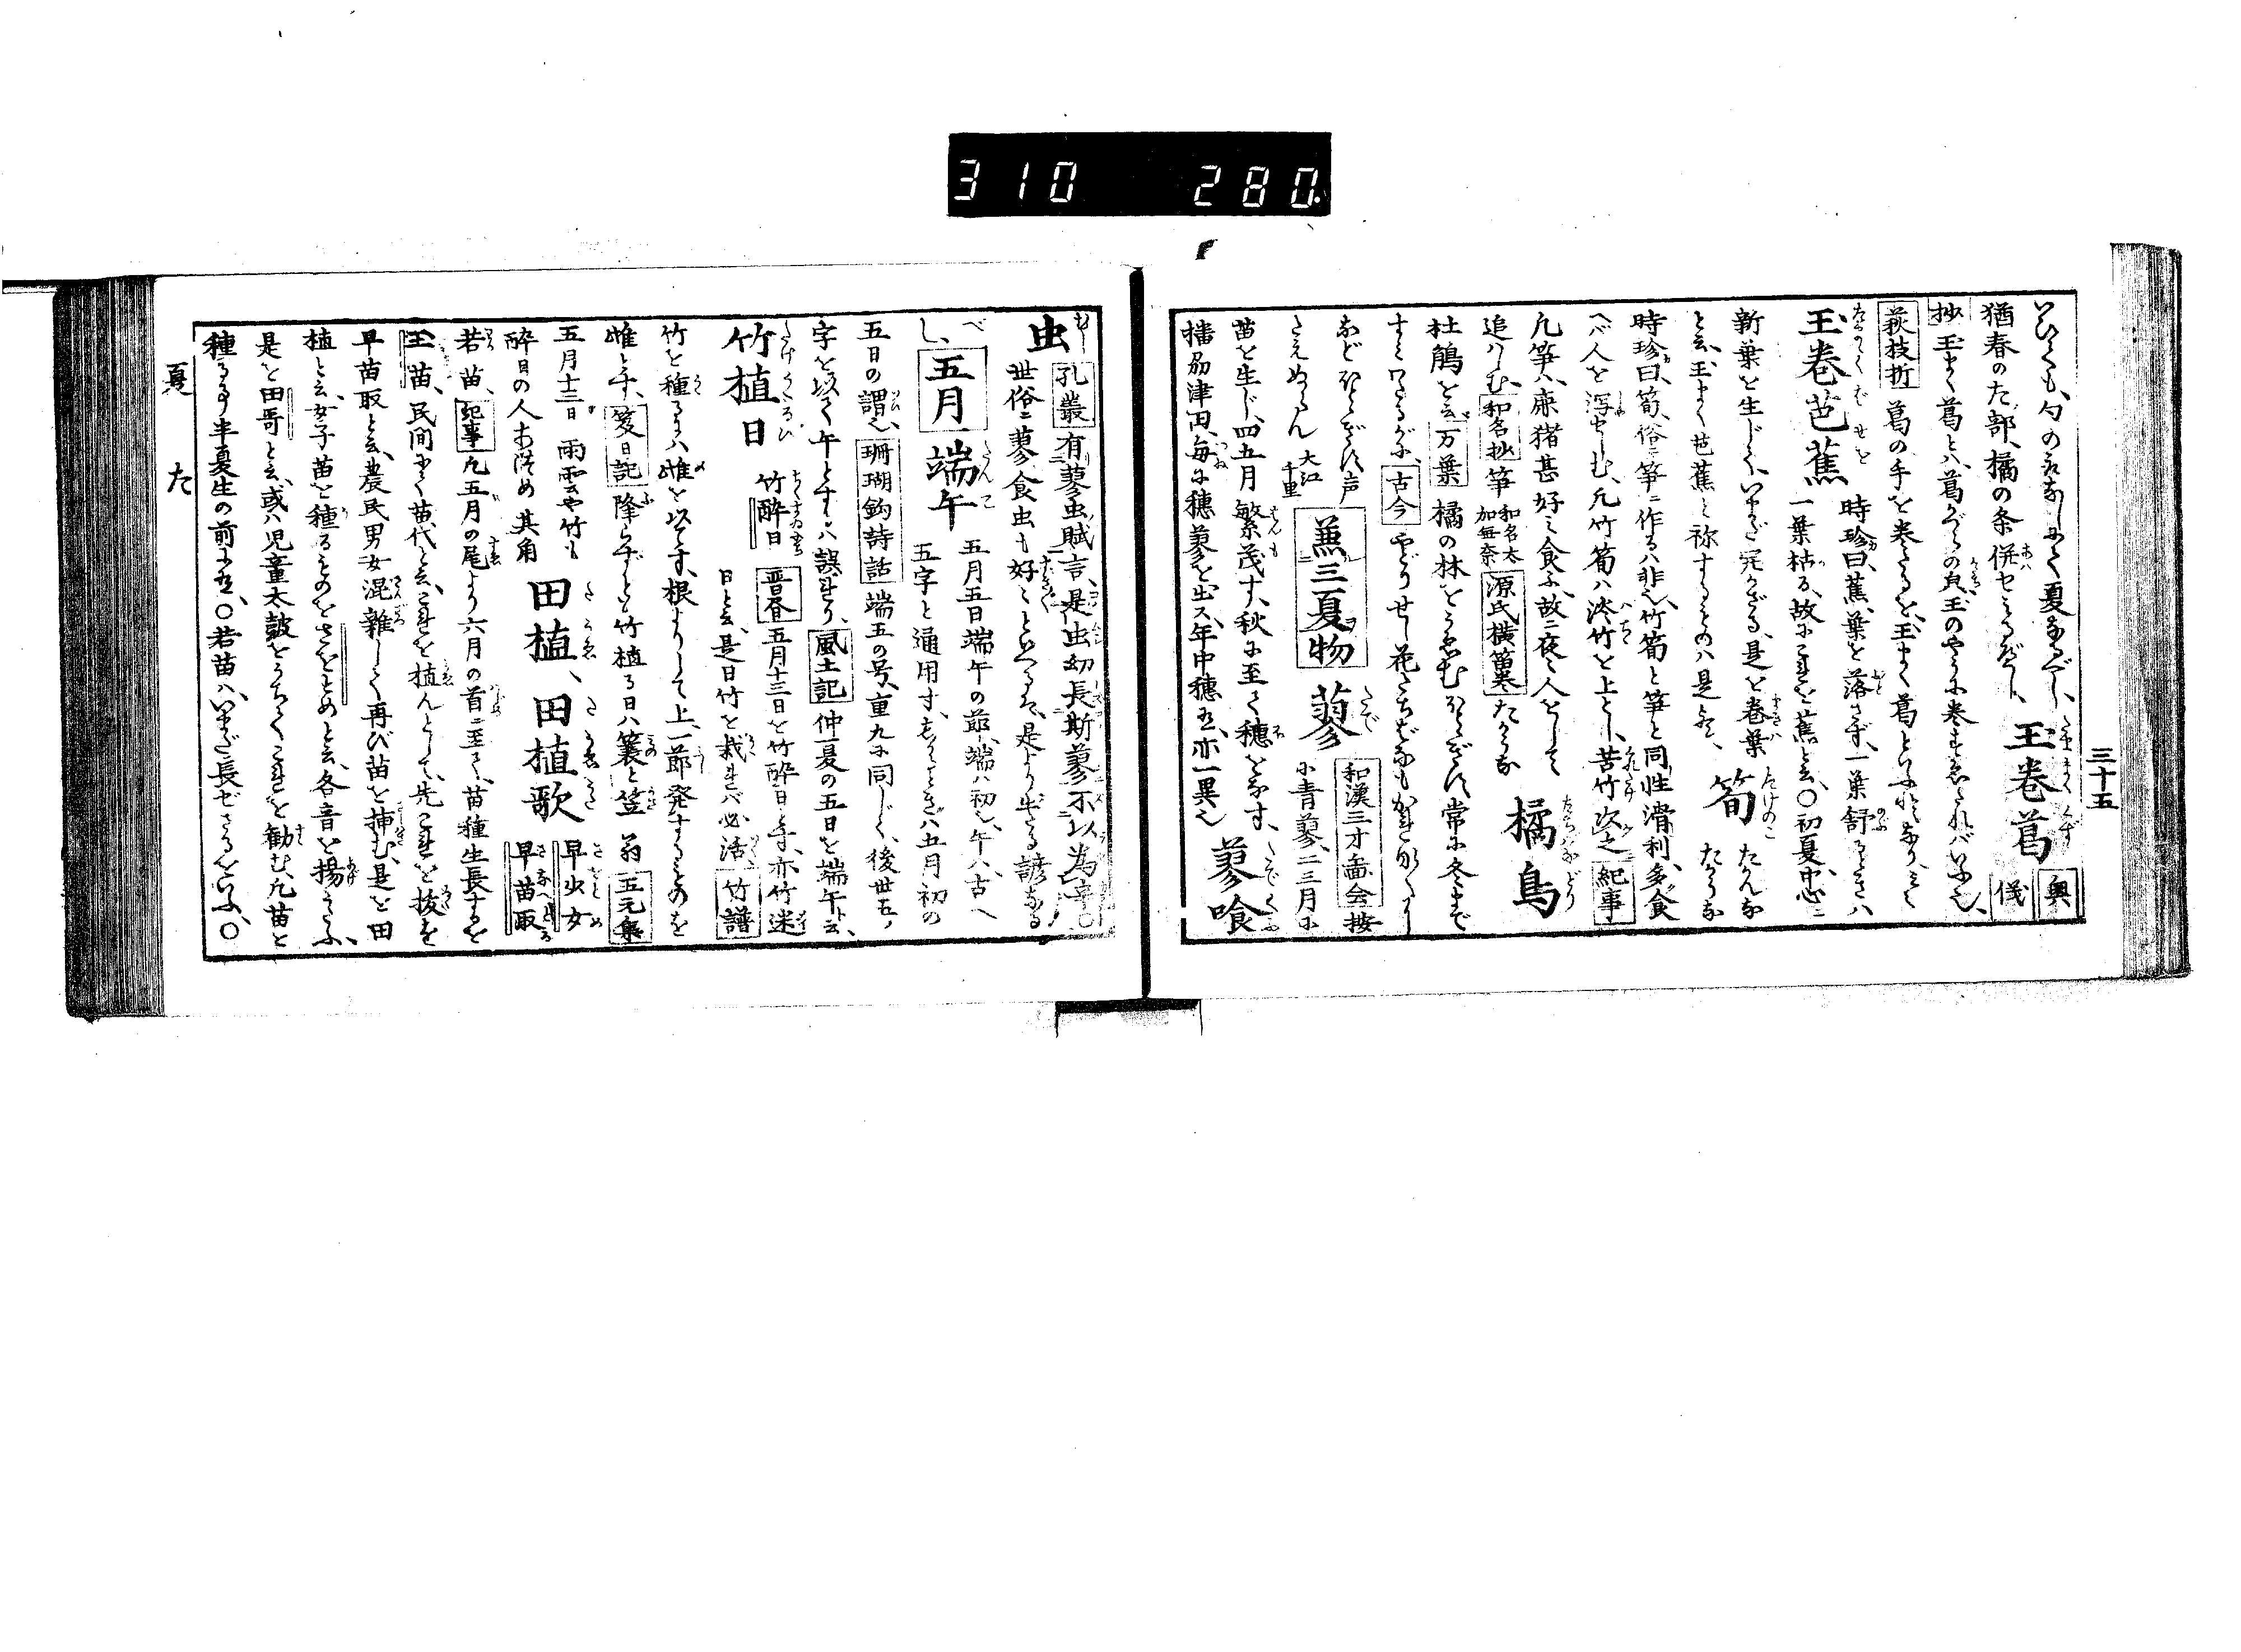 310 280.
三十五
猶春のた部、橘の条併せみるべし、玉巻葛 奥儀
抄 玉まく葛とハ葛かづらの
萩枝折 葛の手を巻たるを、玉まく葛といふ
玉巻芭蕉 時珍曰、蕉、葉を落さず、一葉舒るときハ
一葉枯る、故にこれを蕉と云、〇初夏、中心ニ
新葉を生じて、いまだ完からざる、是を巻葉
と云、玉まく芭蕉と称するものハ是、筍 たかんな たかうな
時珍曰、筍、俗ニ笋ニ作るハ非也、竹筍と笋と同、性滑利、多食
へバ人を瀉せしむ、凡竹筍ハ淡竹を上とし、苦竹次之 紀事
凡笋ハ、麻猪甚好ミ食ふ、故ニ夜々人をして
追ハしむ、和名抄 笋 和名太加無奈 源氏横笛巻 たかうな 橘鳥
杜鵑を云 万葉 橘の林をうゑむほとゝぎす常に冬まで
すミわたるがに、古今 やどりせし花たちばなもかれなくに
などほとゝぎす声
たえぬらん 大江千里 兼三夏物 蓼 和漢三才圖会 按
に青蓼、二三月に
苗を生じ、四五月繁茂す、秋に至て穂をなす、蓼喰
播州津田、毎に穂蓼を出ス、年中穂あり、亦一異也
虫 孔叢 有蓼虫賦言、是虫幼長斯蓼不以為辛、〇
世俗ニ蓼食虫も好々といへるハ、是より出る諺なる
べし、五月 端午 五月五日端午の節、端ハ初也、午ハ古へ
五字と通用す、もろこしハ五月初の
五日の謂也、珊瑚鈎詩話 端五の号、重九に同じく、後世五ノ
字を以て午とするハ誤れり、風土記 仲夏の五日を端午ト云、
竹植日 竹酔日 晋書 五月十三日を竹酔日とす、亦竹迷
日と云、是日竹を栽れバ必活 竹譜
竹を種るにハ雌を以てす、根よりして上、一節発するものを
雌とす、笈日記 降らずとも竹植る日ハ簑と笠 翁 五元集
五月十三日 雨雲や竹も
酔日の人あつめ 其角 田植、田植歌 早少女 早苗取
若苗、紀事 凡五月の尾より六月の首ニ至て、苗種生長するを
玉苗、民間まく苗代と云、これを植んとして、先これを抜を
早苗取と云、農民男女混雑して再び苗を挿む、是を田
植と云、女子苗を種るものをさをとめと云、各音を揚てうたふ、
是を田哥と云、或ハ児童太鼓をうちてこれを勧む、凡苗を
種る事半夏生の前にあり、〇若苗ハ、いまだ長ぜざるをいふ、〇
夏 た